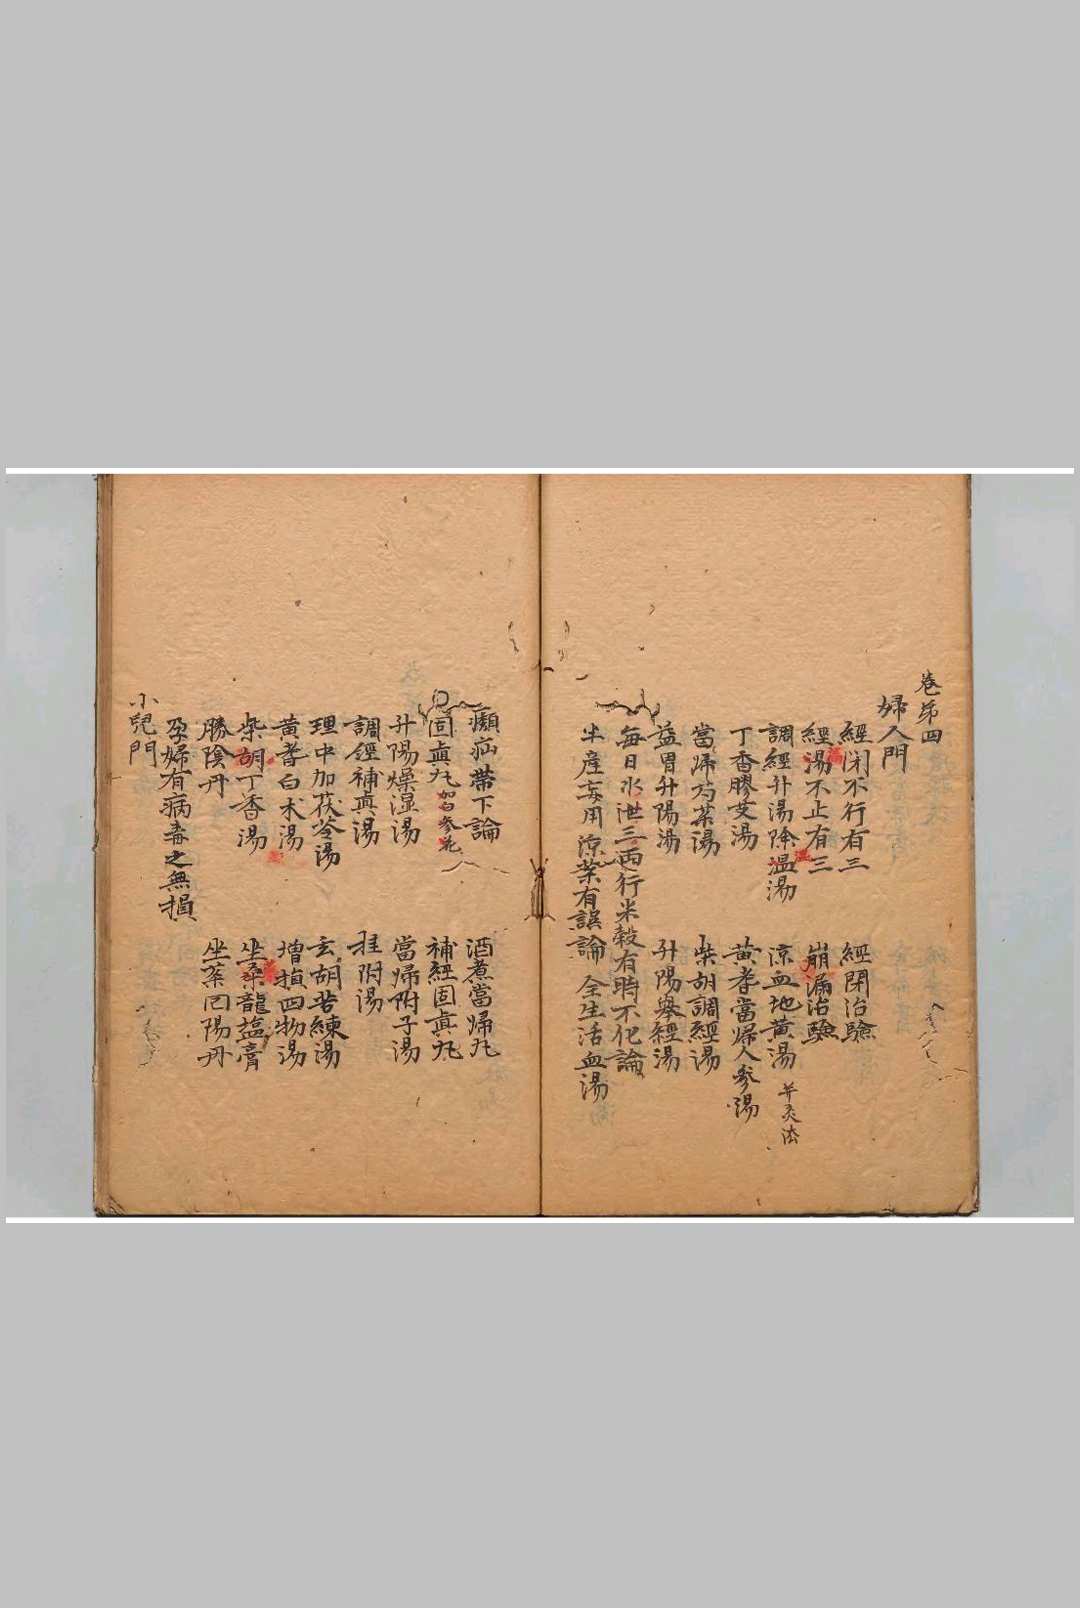 卷苐四
婦人門
經閉不行有三　經閉治驗
經湯不止有三　崩漏治驗
調經升湯除温湯　涼血地黄湯 并灸法
丁香膠艾湯　黄耆當歸人參湯
當歸芍藥湯　柴胡調經湯
益胃升陽湯　升陽舉經湯
每日水泄三両行米穀有時不化論
半產妄用涼藥有誤論　全生活血湯
癩疝帶下論　酒煮當歸丸
固眞丸 加白參花　補經固眞丸
升陽燥濕湯　當歸附子湯
調經補眞湯　桂附湯
理中加茯苓湯　玄胡苦練湯
黄耆白术湯　增損四物湯
柴胡丁香湯　坐桒龍塩膏
勝陰丹　坐藥囘陽丹
孕婦有病毒之無損
小兒門